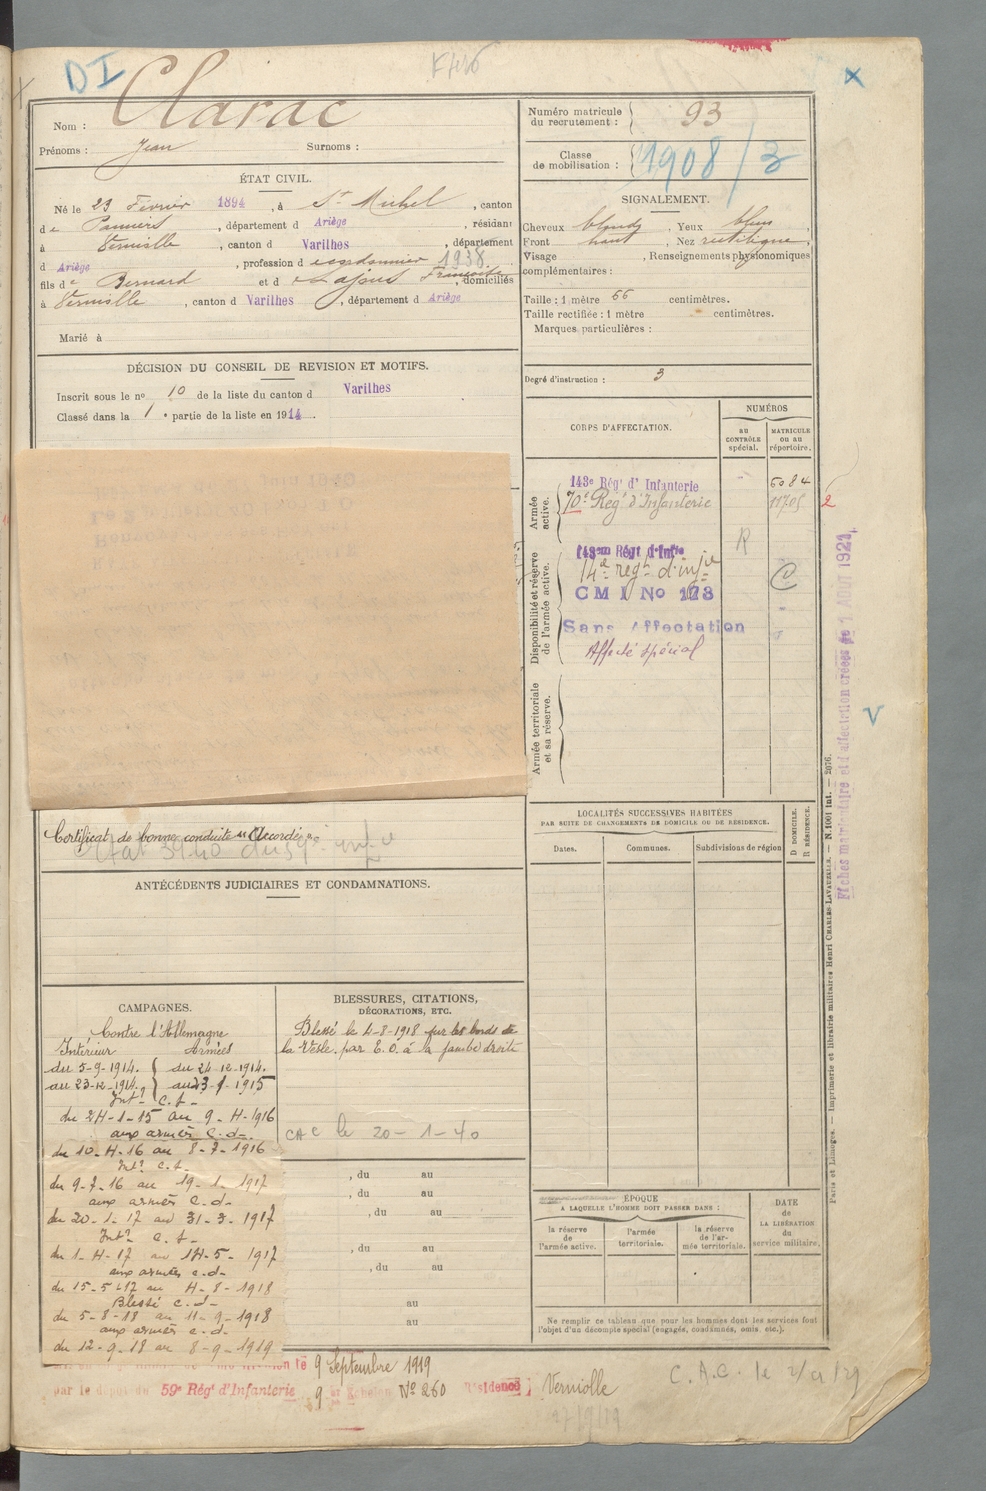 DI
Nom : Clarac
Prénoms : Jean Surnoms :
ÉTAT CIVIL.
Né le 23 Février 1894, à St Michel, canton
de Pamiers, département d Ariège, résidant
à Verniolle, canton d Varilhes, département
d Ariège, profession d cordonnier 1938
fils de Bernard et d Lajous Françoise, domiciliés
à Verniolle, canton d Varilhes, département d Ariège
Marié à
DÉCISION DU CONSEIL DE REVISION ET MOTIFS.
Inscrit sous le no 10 de la liste du canton d Varilhes
Classé dans la 1e partie de la liste en 1914.
Certificat de bonne conduite "Accordé"
ANTÉCÉDENTS JUDICIAIRES ET CONDAMNATIONS.
CAMPAGNES.
Contre l'Allemagne
Intérieur Armées
du 5-9-1914. du 24-12-1914.
au 23-12-1914. au 23-1-1915
Intr C.S-
du 24-1-15 au 9-4-1916
aux armées C.d-
du 10-4-16 au 8-7-1916
Intr C.S-
du 9-7-16 au 19-1-1917
aux armées C.d-
du 20-1-17 au 31-3-1917
Intr C.S-
du 1-4-17 au 14-5-1917
aux armées C.d-
du 15-5-17 au 4-8-1918
Blessé C.d-
du 5-8-18 au 11-9-1918
aux armées C.d-
du 12-9-18 au 8-9-1919
BLESSURES, CITATIONS,
DÉCORATIONS, ETC.
Blessé le 4-8-1918 sur les bords de
la Vesle par E.O. à la jambe droite
CAC le 20-1-40
, du au
, du au
, du au
, du au
, du au
au
au
le 9 Septembre 1919
par le dépôt du 59e Régt d'Infanterie 9e Echelon No 260 Résidence Verniolle
Numéro matricule
du recrutement : 93
Classe
de mobilisation : 1908/3
SIGNALEMENT.
Cheveux blonds, Yeux bleus,
Front haut, Nez rectiligne,
Visage , Renseignements physionomiques
complémentaires :
Taille : 1 mètre 66 centimètres.
Taille rectifiée : 1 mètre centimètres.
Marques particulières :
Degré d'instruction : 3
CORPS D'AFFECTATION.
NUMÉROS
au
CONTRÔLE
spécial.
MATRICULE
ou au
répertoire.
Armée
active.
143e Régt d'Infanterie 5084
70e Regt d'Infanterie 11705
2
Disponibilité et réserve
de l'armée active.
R
143em Régt d'Infie
14e regt d'infie C
CMI No
Sans Affectation
Affecté spécial
Armée territoriale
et sa réserve.
LOCALITÉS SUCCESSIVES HABITÉES
PAR SUITE DE CHANGEMENTS DE DOMICILE OU DE RÉSIDENCE.
Dates.
Communes.
Subdivisions de région
D DOMICILE.
R RÉSIDENCE.
ÉPOQUE
A LAQUELLE L'HOMME DOIT PASSER DANS :
la réserve
de
l'armée active.
l'armée
territoriale.
la réserve
de l'ar-
mée territoriale.
DATE
de
LA LIBÉRATION
du
service militaire.
Ne remplir ce tableau que pour les hommes dont les services font
l'objet d'un décompte spécial (engagés, condamnés, omis, etc.).
Fiches matriculaire et d'affectation créées le 1 AOUT 1921
V
Paris et Limoges. — Imprimerie et librairie militaires Henri CHARLES-LAVAUZELLE. — N. 1001 int. — 2076.